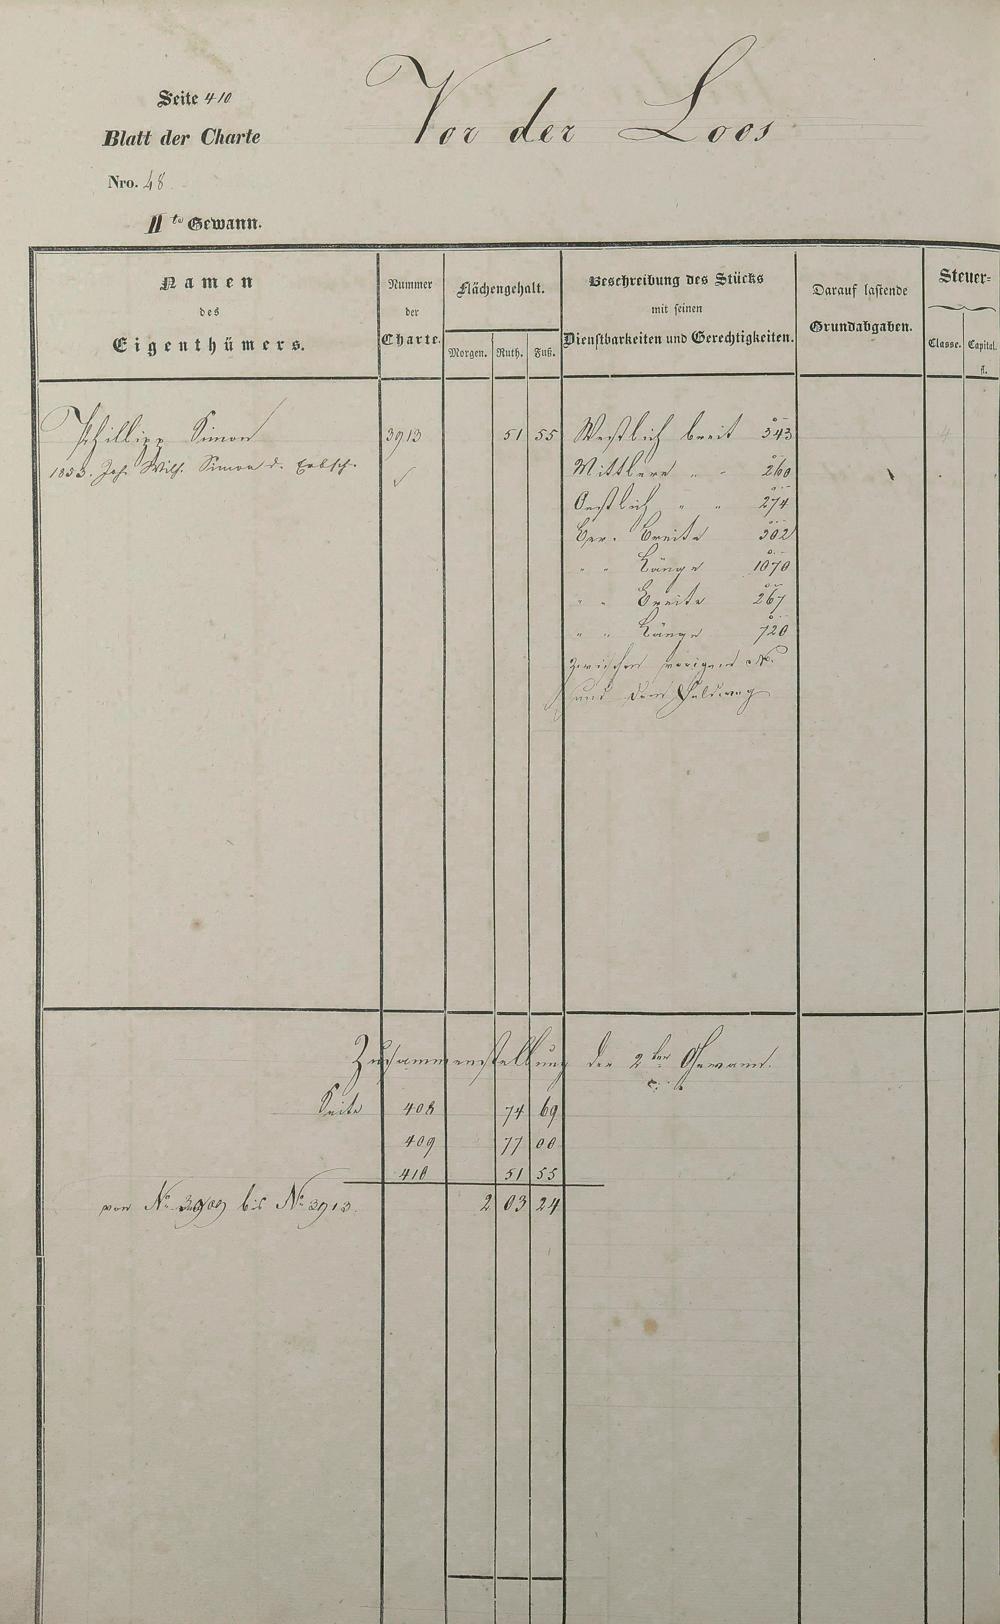 Seite 410
Vor der Loos
Blatt der Charte
Nro. 48
II te Gewann.
Namen
des
Eigenthümers.
Nummer
der
Charte.
Flächengehalt.
Morgen. Ruth. Fuß.
Beschreibung des Stücks
mit seinen
Dienstbarkeiten und Gerechtigkeiten.
Darauf lastende
Grundabgaben.
Steuer=
Classe. Capital.
fl.
Phillipp Simon 3913 51 55 Westlich breit 343
1853. Joh. Wilh. Simon d. Erbsch. Mittlere " " 260
Oestlich " " 274
Ver. Breite 302
" " Länge 1070
" " Breite 267
" " Länge 720
Zwischen vorigen No.
und dem Feldweg
Zusammenstellung der 2ten Gewann.
Seite 408 74 69
409 77 00
410 51 55
von No. 3909 bis No. 3913. 2 03 24